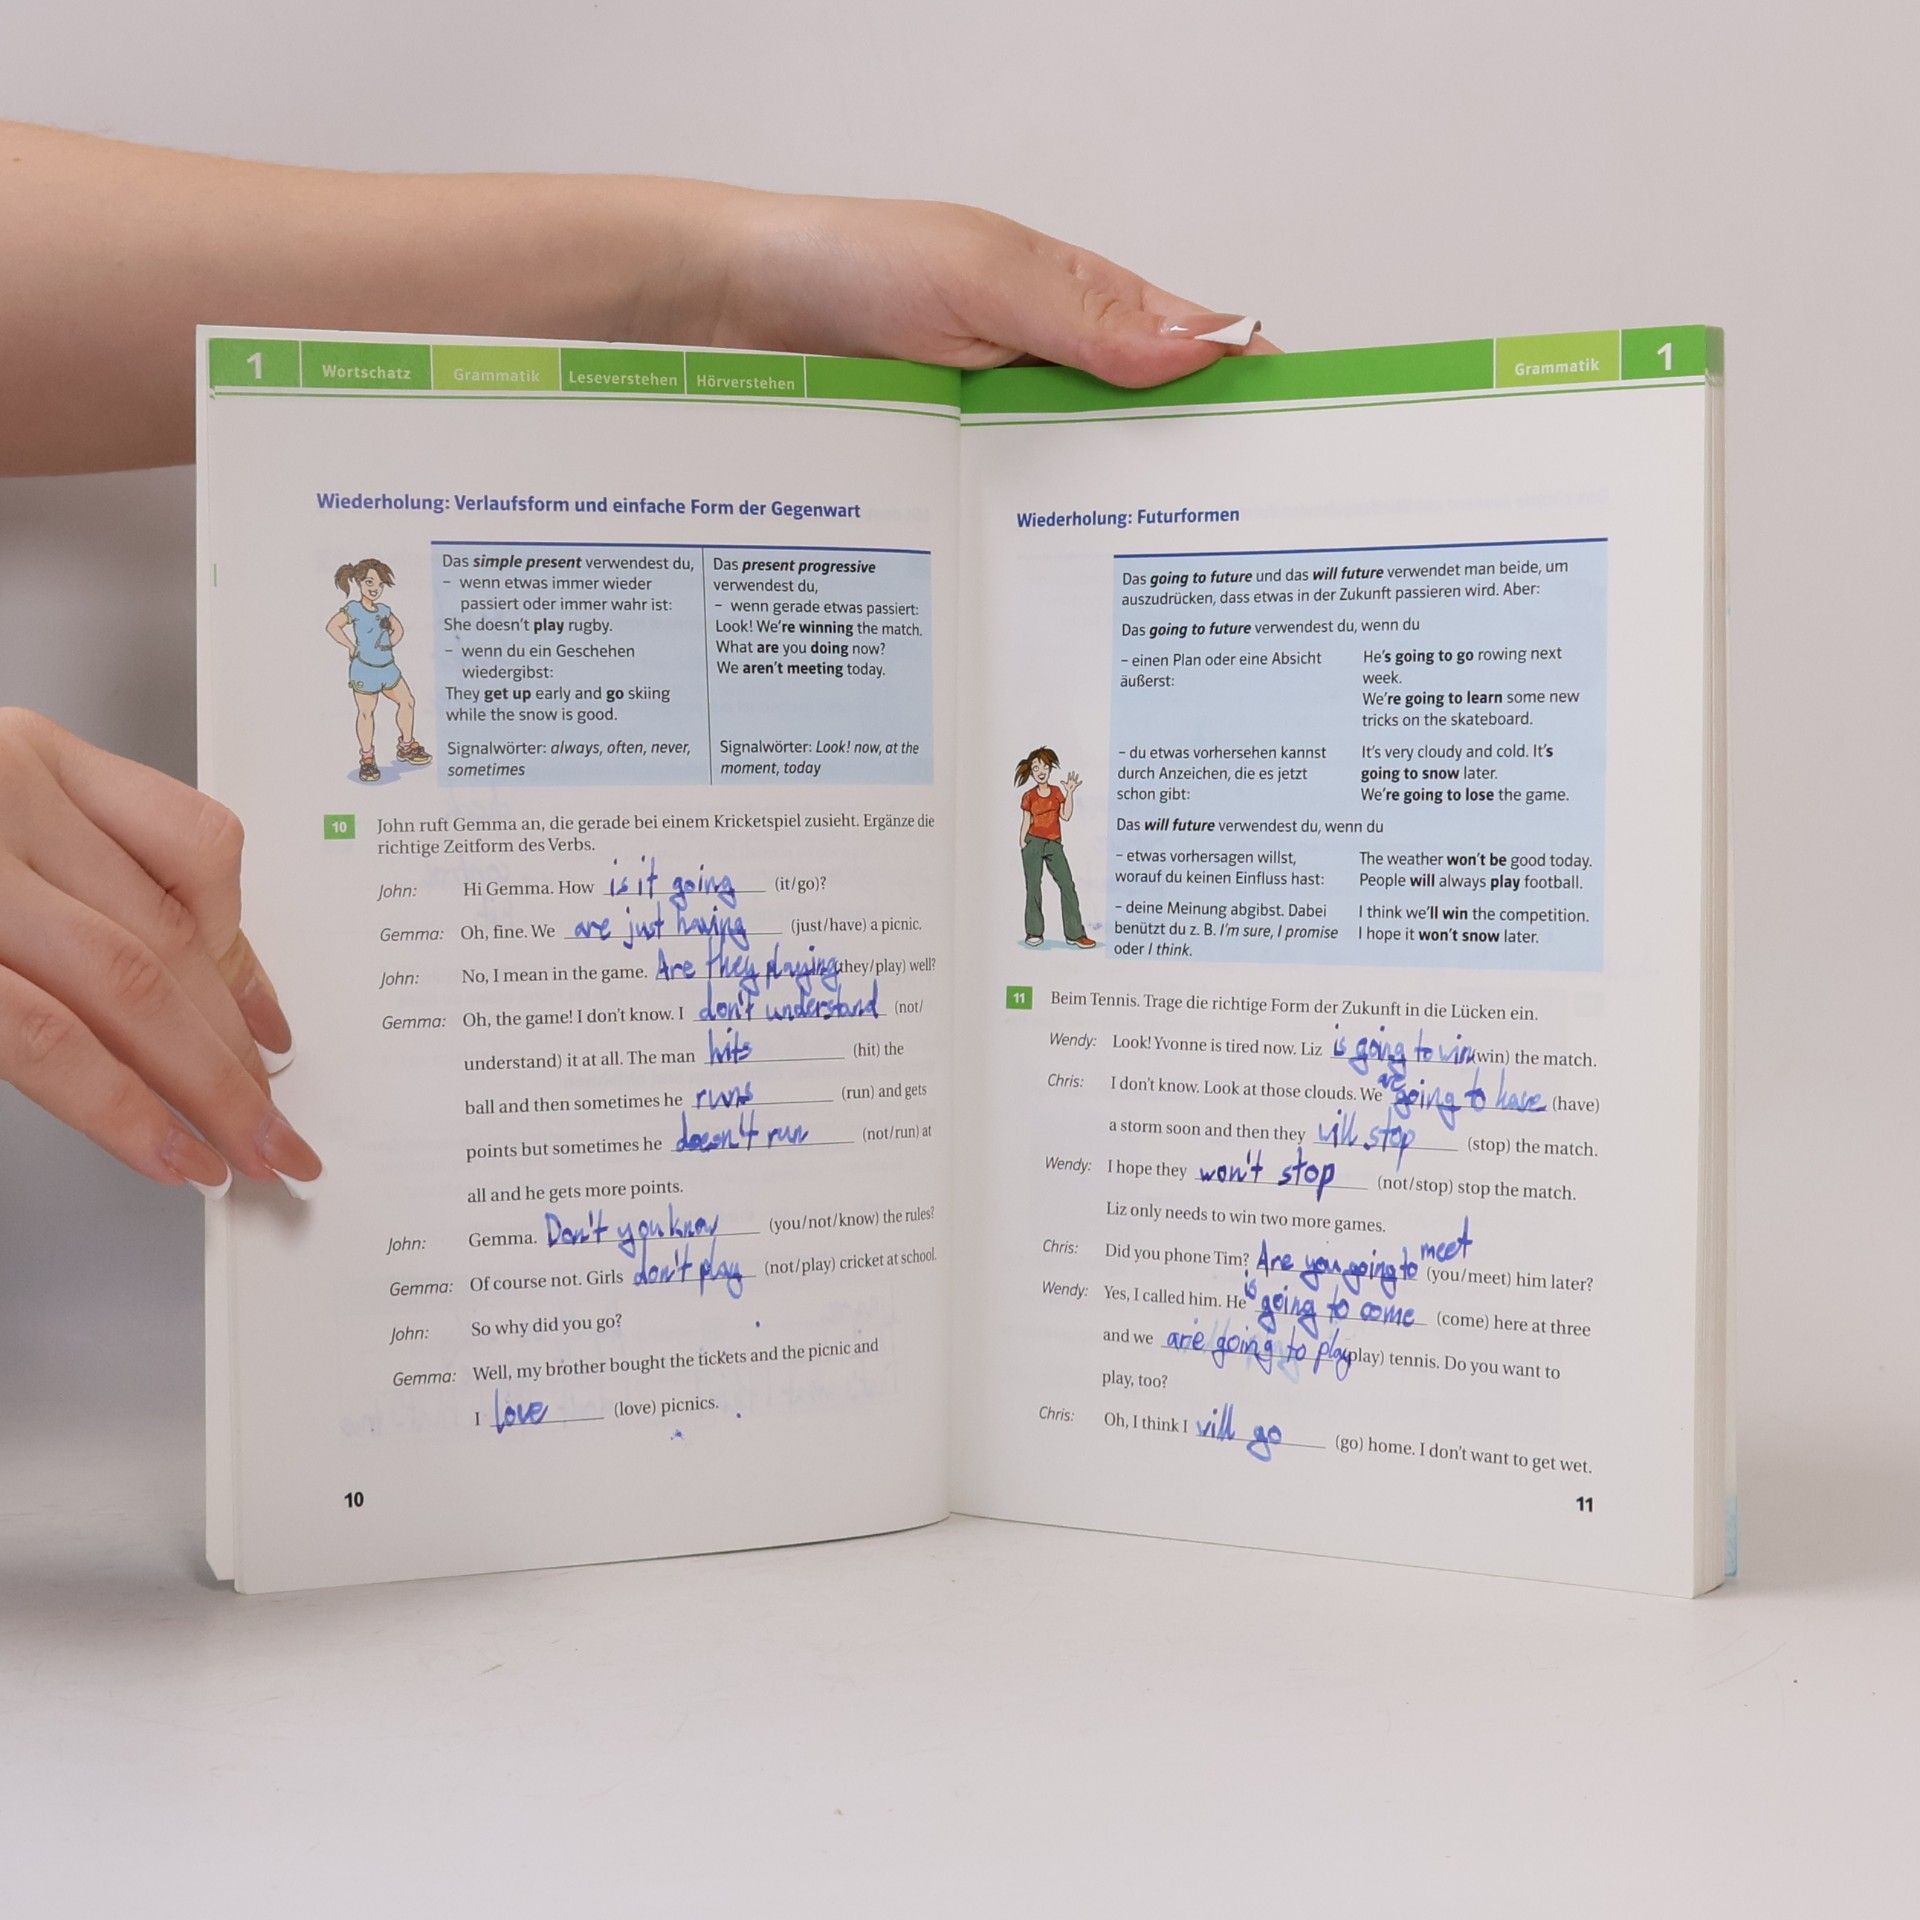 1 Wortschatz Grammatik Leseverstehen Hörverstehen
Wiederholung: Verlaufsform und einfache Form der Gegenwart
Das simple present verwendest du,
– wenn etwas immer wieder
passiert oder immer wahr ist:
She doesn't play rugby.
– wenn du ein Geschehen
wiedergibst:
They get up early and go skiing
while the snow is good.
Signalwörter: always, often, never,
sometimes
Das present progressive
verwendest du,
– wenn gerade etwas passiert:
Look! We're winning the match.
What are you doing now?
We aren't meeting today.
Signalwörter: Look! now, at the
moment, today
10 John ruft Gemma an, die gerade bei einem Kricketspiel zusieht. Ergänze die
richtige Zeitform des Verbs.
John: Hi Gemma. How is it going (it/go)?
Gemma: Oh, fine. We are just having (just/have) a picnic.
John: No, I mean in the game. Are they playing (they/play) well?
Gemma: Oh, the game! I don't know. I don't understand (not/
understand) it at all. The man hits (hit) the
ball and then sometimes he runs (run) and gets
points but sometimes he doesn't run (not/run) at
all and he gets more points.
John: Gemma. Don't you know (you/not/know) the rules?
Gemma: Of course not. Girls don't play (not/play) cricket at school.
John: So why did you go?
Gemma: Well, my brother bought the tickets and the picnic and
I love (love) picnics.
10
Grammatik 1
Wiederholung: Futurformen
Das going to future und das will future verwendet man beide, um
auszudrücken, dass etwas in der Zukunft passieren wird. Aber:
Das going to future verwendest du, wenn du
– einen Plan oder eine Absicht
äußerst:
He's going to go rowing next
week.
We're going to learn some new
tricks on the skateboard.
– du etwas vorhersehen kannst
durch Anzeichen, die es jetzt
schon gibt:
It's very cloudy and cold. It's
going to snow later.
We're going to lose the game.
Das will future verwendest du, wenn du
– etwas vorhersagen willst,
worauf du keinen Einfluss hast:
The weather won't be good today.
People will always play football.
– deine Meinung abgibst. Dabei
benützt du z. B. I'm sure, I promise
oder I think.
I think we'll win the competition.
I hope it won't snow later.
11 Beim Tennis. Trage die richtige Form der Zukunft in die Lücken ein.
Wendy: Look! Yvonne is tired now. Liz is going to win (win) the match.
Chris: I don't know. Look at those clouds. We are going to have (have)
a storm soon and then they will stop (stop) the match.
Wendy: I hope they won't stop (not/stop) stop the match.
Liz only needs to win two more games.
Chris: Did you phone Tim? Are you going to meet (you/meet) him later?
Wendy: Yes, I called him. He is going to come (come) here at three
and we are going to play (play) tennis. Do you want to
play, too?
Chris: Oh, I think I will go (go) home. I don't want to get wet.
11